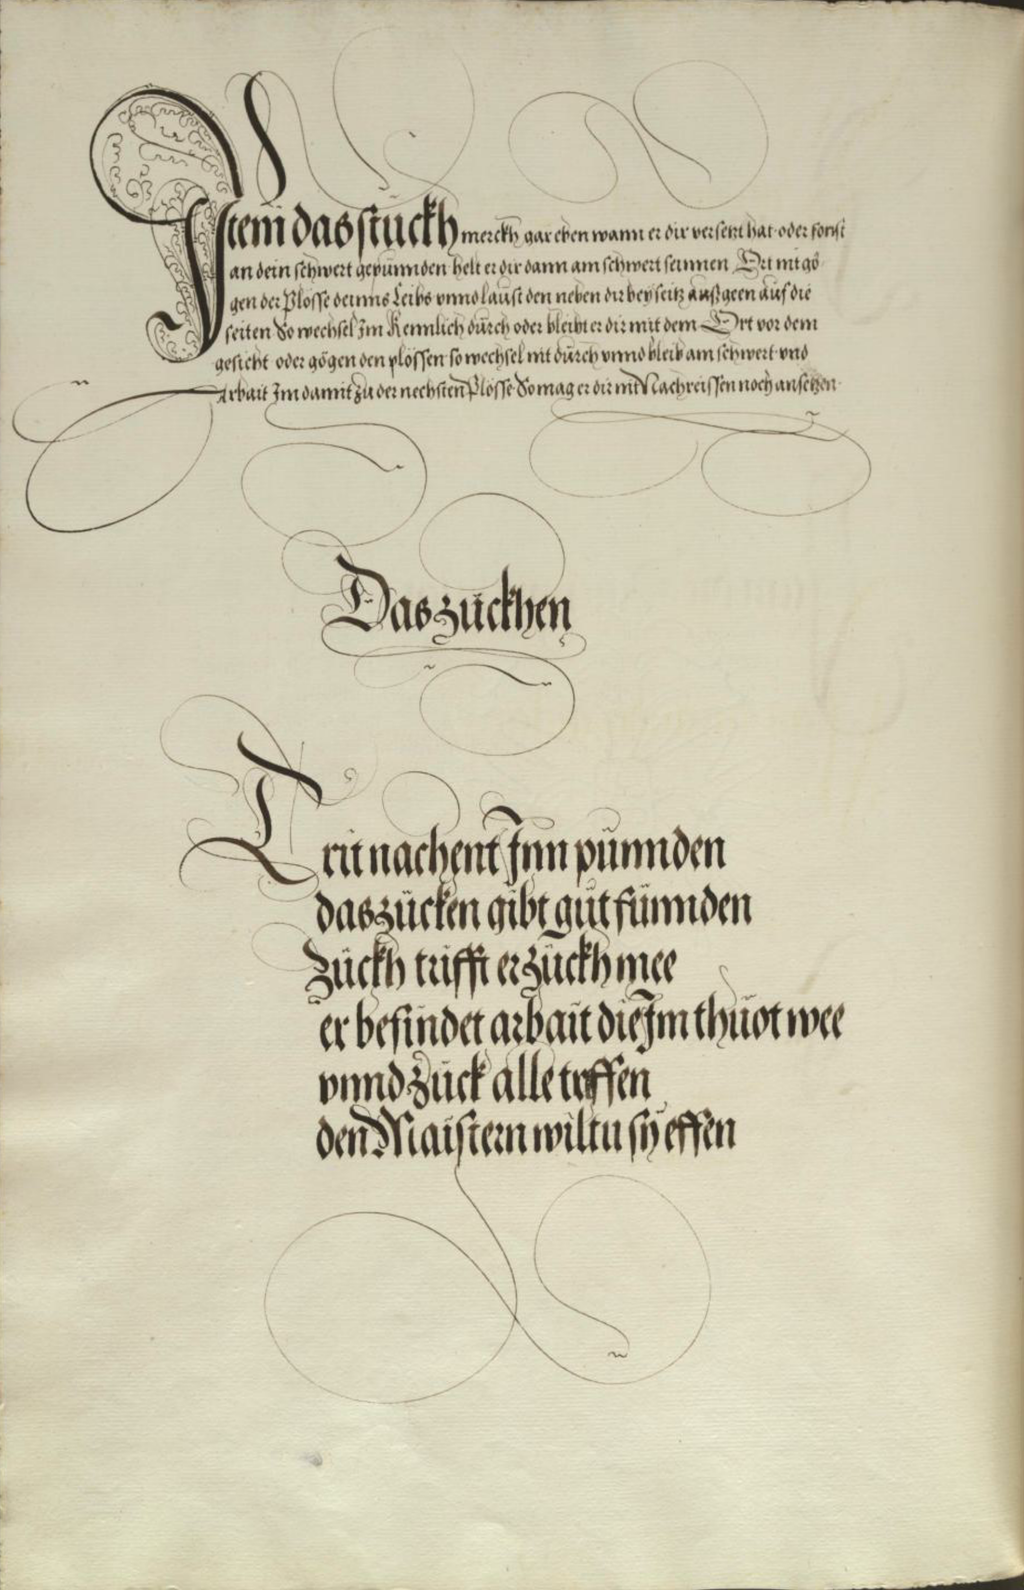 Item das stuckh merckh gar eben wann er dir versetzt hat oder sonst
an dein schwert gepunnden helt er dir dann am schwert seinnen Ort nit gö
gen der Plösse deinns Leibs vnnd laust den neben dir beyseitz außgeen auf die
seiten So wechsel Im Kennlich durch oder bleibt er dir mit dem Ort vor dem
gesicht oder gögen den plössen so wechsel nit durch vnnd bleib am schwert vnd
Arbait Im damit zu der nechsten Plösse So mag er dir mit Nachreissen noch ansetzen
Das zückhen
Trit nachent Inn pünnden
das zücken gibt gut fünnden
Zückh trifft er zückh mee
er befindet arbait die Im thüot wee
vnnd Zück alle treffen
den Maistern wiltu sÿ effen